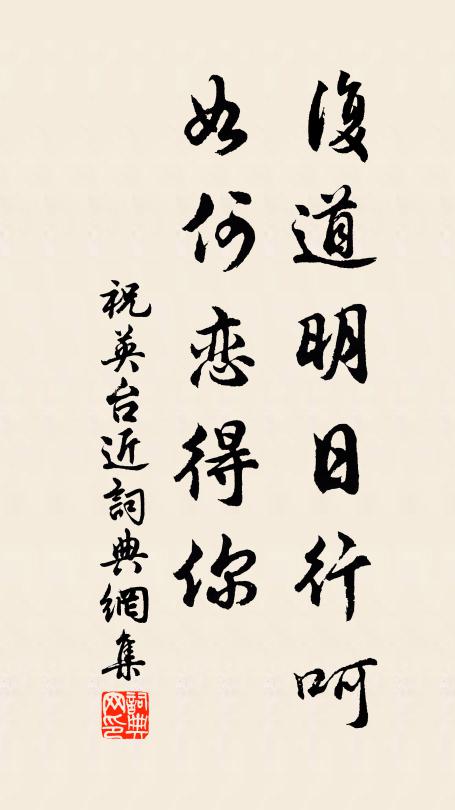 復道明日行呵
如何恋得你
祝英台近詞典網集
詞典网印